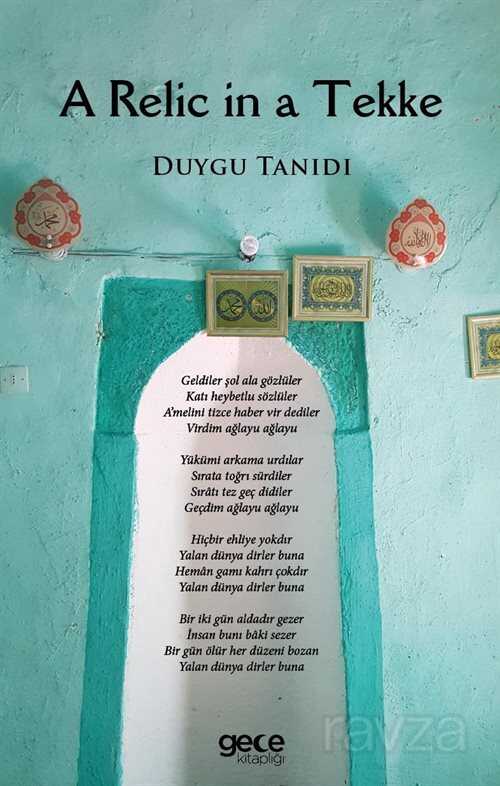 A Relic in a Tekke
DUYGU TANIDI
Geldiler şol ala gözlüler
Katı heybetlu sözlüler
A'melini tizce haber vir dediler
Virdim ağlayu ağlayu
Yükümi arkama urdılar
Sırata toğrı sürdiler
Sırâtı tez geç didiler
Geçdim ağlayu ağlayu
Hiçbir ehliye yokdır
Yalan dünya dirler buna
Hemân gamı kahrı çokdır
Yalan dünya dirler buna
Bir iki gün aldadır gezer
İnsan bunı bâki sezer
Bir gün ölür her düzeni bozan
Yalan dünya dirler buna
gece
kitaplığı
ravza